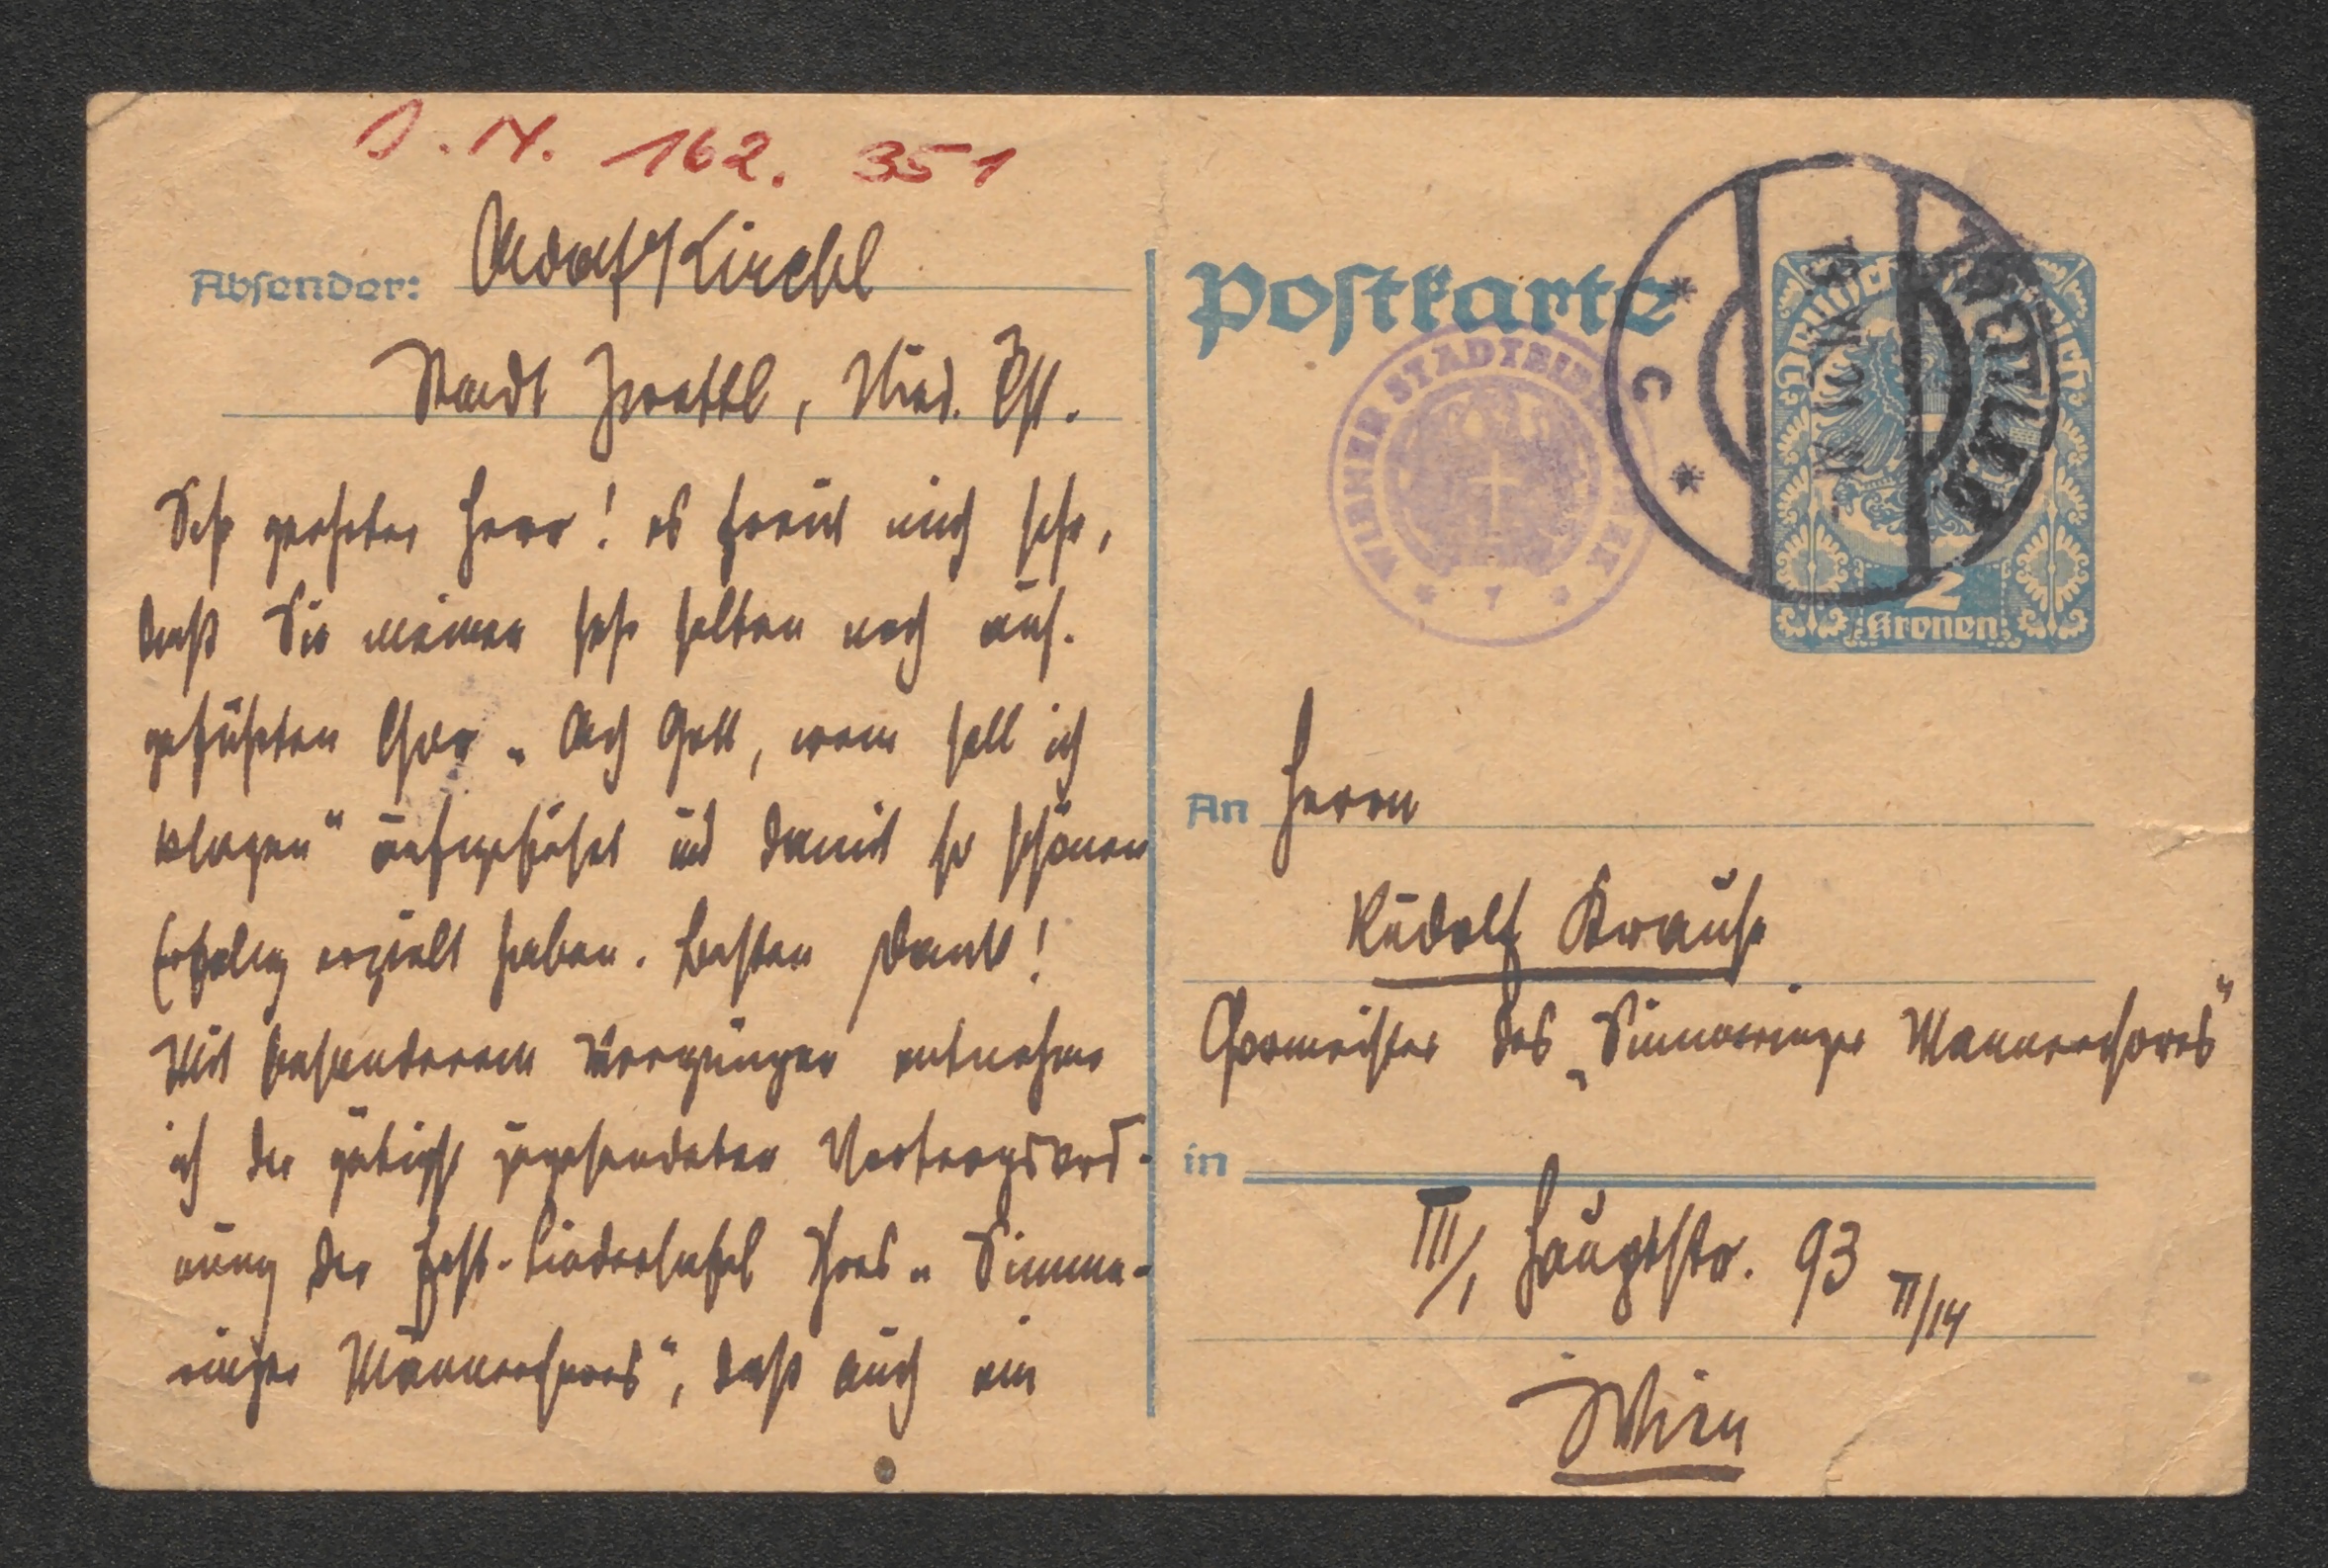 J. N. 162.351
Absender: Adolf Kirchl
Stadt Zwettl, Nied. Öst.
Sehr geehrter Herr! es freut mich sehr,
daß Sie meinen sehr selten noch auf-
geführten Chor „Ach Gott, wem soll ich
klagen" aufgeführt und damit so schönen
Erfolg erzielt haben. Besten Dank!
Mit besonderem Vergnügen entnehme
ich der gütigst zugesendeten Vortragsord-
nung der Fest-Liedertafel Ihres „Simme-
ringer Männerchores", daß auch ein
Postkarte
WIENER STADTBIBLIOTHEK
ZWETTL
C
Deutschösterreich
2
Kronen
An Herrn
Rudolf Krauß
Chormeister des „Simmeringer Männerchores"
in
III/1 Hauptstr. 93 II/14
Wien